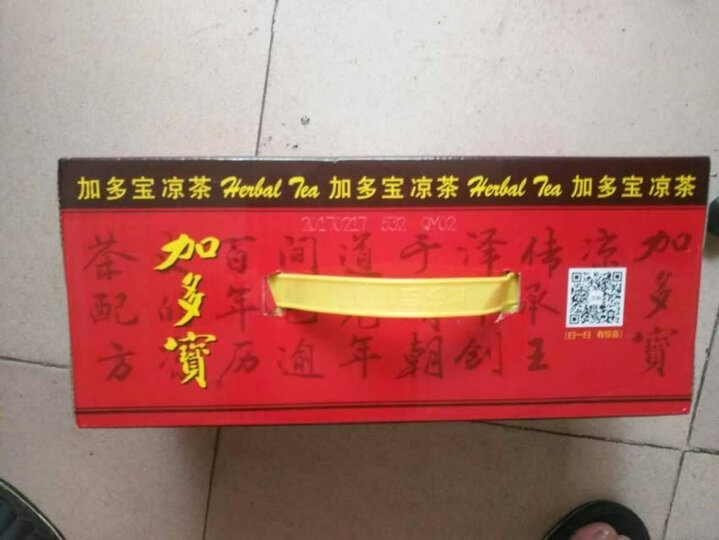 加多宝凉茶 Herbal Tea 加多宝凉茶 Herbal Tea 加多宝凉茶
20170217 532 QM02
加多寶
加多寶
凉
传承王
泽 创
于 朝
道 年
间 逾
百年历
的
茶配方
扫一扫 有惊喜